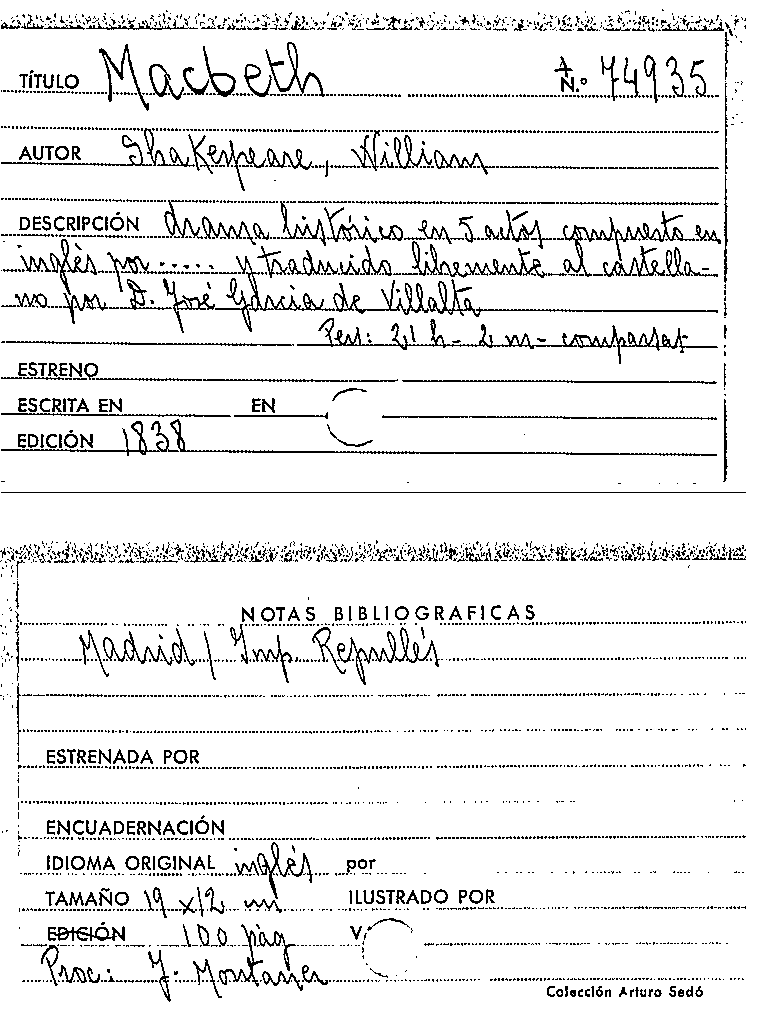 TÍTULO Macbeth N.º 74935
AUTOR Shakespeare, William
DESCRIPCIÓN drama histórico en 5 actos compuesto en
inglés por ..... y traducido libremente al castella-
no por D. José García de Villalta
Pers: 21 h - 2 m - comparsas
ESTRENO
ESCRITA EN EN
EDICIÓN 1838
NOTAS BIBLIOGRAFICAS
Madrid / Imp Repullés
ESTRENADA POR
ENCUADERNACIÓN
IDIOMA ORIGINAL inglés por
TAMAÑO 19 x 12 ILUSTRADO POR
EDICIÓN 100 pág V.
Proc: J. Montaner
Colección Arturo Sedó